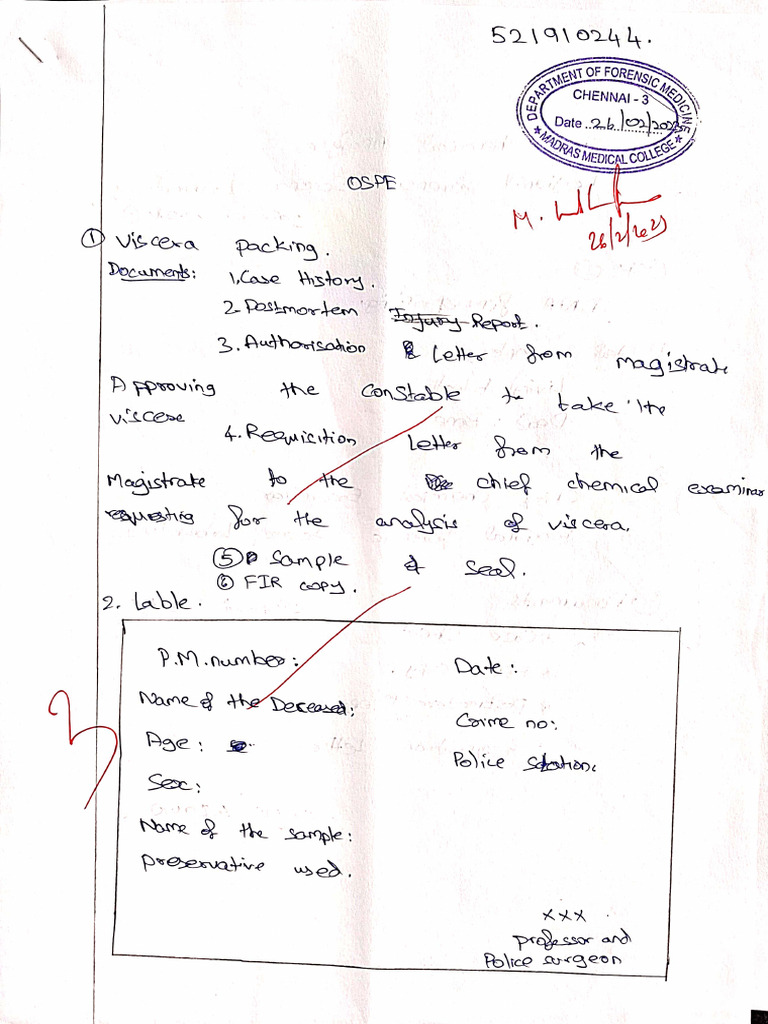 521910244.
DEPARTMENT OF FORENSIC MEDICINE
CHENNAI - 3
Date 26/02/202
★ MADRAS MEDICAL COLLEGE ★
M.
26/2/2023
OSPE
① Viscera packing.
Documents: 1. Case History.
2. Postmortem Injury Report.
3. Authorisation Letter from magistrate
Approving the constable to take the
viscese
4. Requicition Letter from the
Magistrate to the chief chemical examinar
requesting for the analysis of viscera.
⑤ sample & seal.
⑥ FIR copy.
2. Lable.
P.M. number:
Date:
Name of the Deceased:
Corme no:
Age:
Police Station:
Sex:
Name of the sample:
preservative used.
3
xxx
professor and
Police surgeon